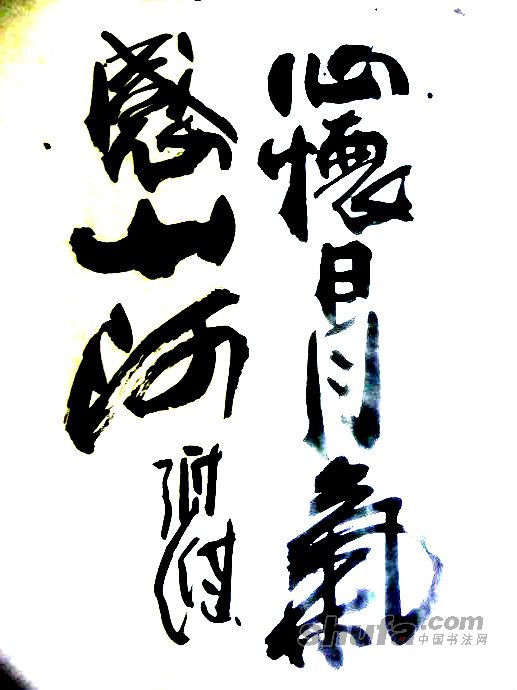 心懷日月氣
感山河
shufa.com
中国书法网